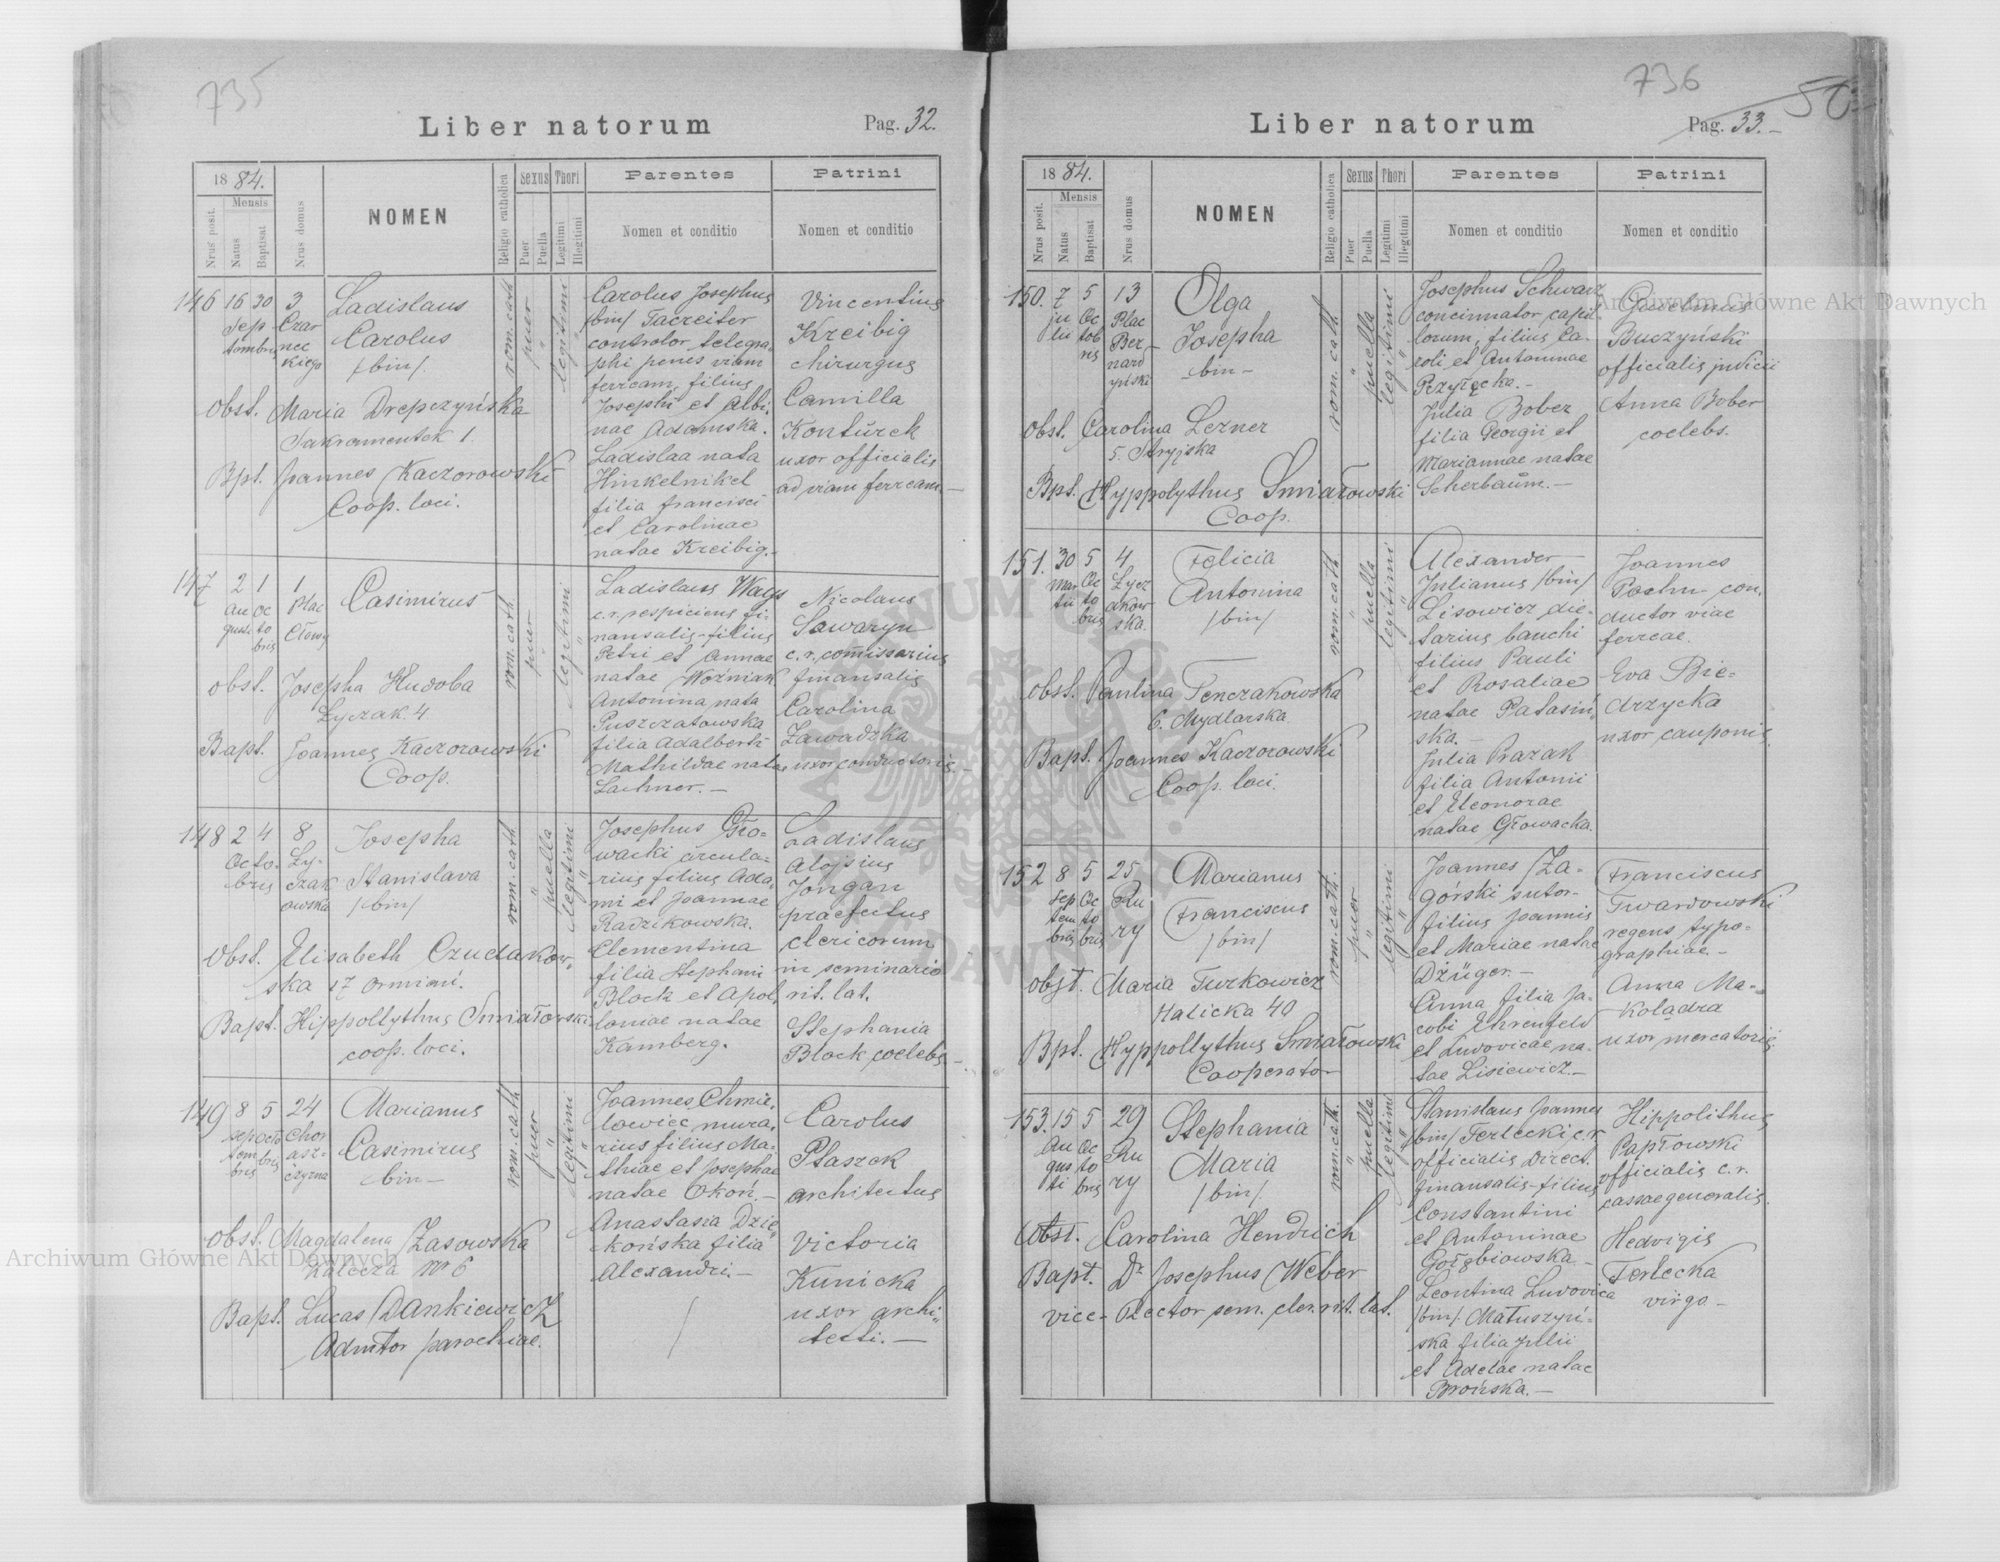 735
Liber natorum
Pag. 32.
1884.
Mensis
Nrus posit.
Natus
Baptisat
Nrus domus
NOMEN
Religio catholica
Sexus
Puer
Puella
Thori
Legitimi
Illegitimi
Parentes
Nomen et conditio
Patrini
Nomen et conditio
146 16 30 3
Sep
tembris
Czar
nec
kiego
Ladislaus
Carolus
/bin/
rom. cath
puer
legitimi
obst. Maria Drepczyńska
Sakramentek 1.
Bpt. Joannes Kaczorowski
Coop. loci.
Carolus Josephus
/bin/ Tacreiter
controlor telegra-
phi penes viam
ferream, filius
Josephi et Albi-
nae Adamska.
Ladislaa nata
Hinkelnikel
filia Francisci
et Carolinae
natae Kreibig.-
Vincentius
Kreibig
chirurgus
Camilla
Konturek
uxor officialis
ad viam ferream.-
147 2 1 1
Au Oc Plac
gusti to Cłowy
bris
Casimirus
rom. cath
puer
legitimi
obst. Josepha Hudoba
Łyczak. 4
Bapt. Joannes Kaczorowski
Coop.
Ladislaus Wags
c.r. respiciens fi-
nansalis - filius
Petri et Annae
natae Wozniak
Antonina nata
Puszczatowska
filia Adalberti
Mathildae natae
Lachner.-
Nicolaus
Sawaryn
c.r. comissarius
finansalis
Carolina
Zawadzka
uxor conductoris-
148 2 4 8
Octo-
bris
Ły-
czak
owska
Josepha
Stanislava
/bin/
rom. cath
puella
legitimi
Obst. Elisabeth Czudakow-
ska 17 Ormiań.
Bapt. Hippollythus Smiałowski
coop. loci.
Josephus Gło-
wacki circula-
rius filius Ada-
mi et Joannae
Radzikowska.
Clementina
filia Stephani
Block et Apol-
loniae natae
Kamberg.
Ladislaus
Alojsius
Jongan
praefectus
clericorum
in seminario
rit. lat.
Stephania
Block coelebs-
149 8 5 24
sep octo Chor
tem bris ąsz-
bris czyzna
Marianus
Casimirus
bin-
rom. cath
puer
legitimi
obst. Magdalena Zasowska
Kalecza Nr 6
Bapt. Lucas Dankiewicz
Admtor parochiae.
Joannes Chmie-
lowiec mura-
rius filius Ma-
thiae et Josephae
natae Okoń.-
Anastasia Dzie-
końska filia
Alexandri.-
Carolus
Ptaszek
architectus
Victoria
Kunicka
uxor archi-
tecti.-
736
50
Liber natorum
Pag. 33.-
1884.
Mensis
Nrus posit.
Natus
Baptisat
Nrus domus
NOMEN
Religio catholica
Sexus
Puer
Puella
Thori
Legitimi
Illegitimi
Parentes
Nomen et conditio
Patrini
Nomen et conditio
150. 7 5 13
Ju Oc Plac
lii tob Ber-
ris nard
yński
Olga
Josepha
-bin-
rom. cath
puella
legitimi
obst. Carolina Lezner
5. Stryjska
Bpt. Hyppolythus Smiałowski
Coop.
Josephus Schwarz
concinnator capil-
lorum, filius Ca-
roli et Antoninae
Przyłęcka.-
Julia Bober
filia Georgii et
Mariannae natae
Scherbaum.-
Guilelmus
Buczyński
officialis judicii
Anna Bober
coelebs.
151. 30 5 4
Mar Oc Łycz
tii to akow
bris ska.
Felicia
Antonina
/bin/
rom. cath
puella
legitimi
obst. Paulina Tenczakowska
6. Mydlarska
Bapt. Joannes Kaczorowski
Coop. loci.
Alexander
Julianus /bin/
Lisowicz die-
tarius banchi
filius Pauli
et Rosaliae
natae Patasiń-
ska.-
Julia Prazak
filia Antonii
et Eleonorae
natae Głowacka.
Joannes
Pachn con-
ductor viae
ferreae.
Eva Bie-
drzycka
uxor cauponis
152 8 5 25
Sep Oc Ru
tem to ry
bris bris
Marianus
Franciscus
/bin/
rom. cath.
puer
legitimi
obst. Maria Turkowicz
Halicka 40
Bpt. Hyppollythus Smiałowski
Cooperator
Joannes Za-
górski sutor-
filius Joannis
et Mariae natae
Dżüger.-
Anna filia Ja-
cobi Ehrenfeld
et Ludovicae na-
tae Lisiewicz.-
Franciscus
Twardowski
regens typo-
graphiae.-
Anna Ma-
kolądra
uxor mercatoris
153. 15 5 29
Au Oc Ru
gus to ry
ti bris
Stephania
Maria
/bin/
rom. cath.
puella
legitimi
Obst. Carolina Hendrich
Bapt. Dr Josephus Weber
vice-Rector sem. cler. rit. lat.
Stanislaus Joannes
/bin/ Terlecki c.r.
officialis Direct.
finansalis - filius
Constantini
et Antoninae
Gołębiowska-
Leontina Ludovica
/bin/ Matuszyń-
ska filia Julii
et Adelae natae
Brońska.-
Hippolithus
Papłowski
officialis c.r.
cassae generalis.
Hedvigis
Terlecka
virgo.-
Archiwum Główne Akt Dawnych
Archiwum Główne Akt Dawnych